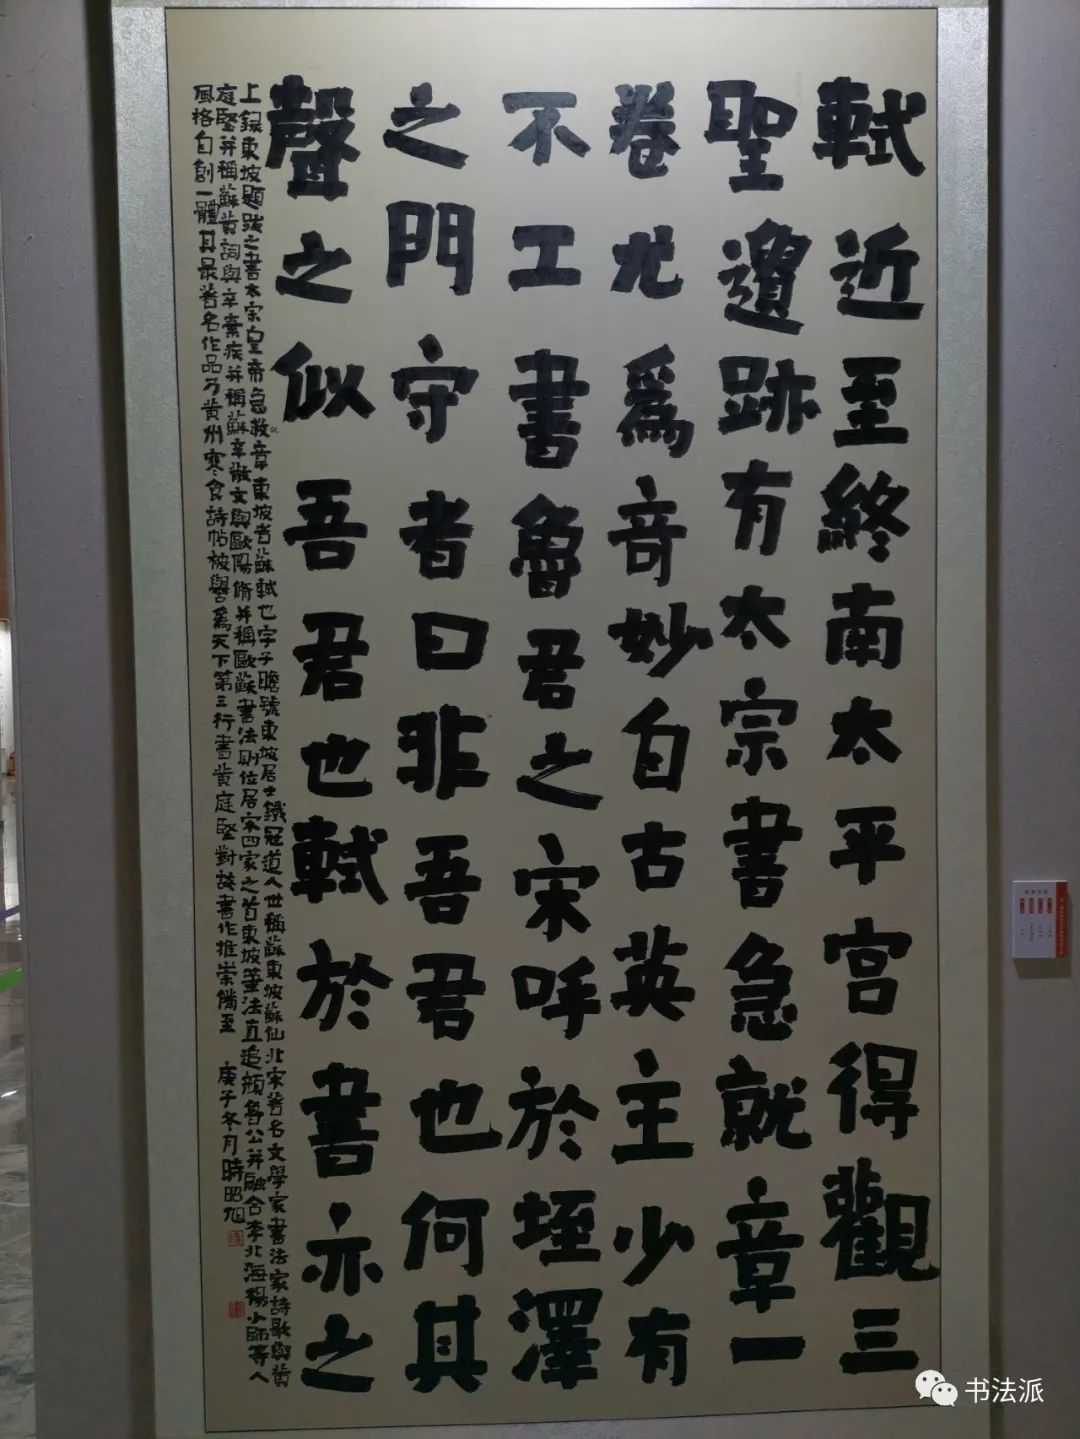 軾近至終南太平宮得觀三
聖遺跡有太宗書急就章一
卷尤爲奇妙自古英主少有
不工書魯君之宋呼於垤澤
之門守者曰非吾君也何其
聲之似吾君也軾於書亦之
上録東坡題跋之書太宗皇帝急就章東坡者蘇軾也字子瞻號東坡居士鐵冠道人世稱蘇東坡蘇仙北宋著名文學家書法家詩歌與黄
庭堅并稱蘇黄詞與辛棄疾并稱蘇辛散文與歐陽脩并稱歐蘇書法則位居宋四家之首東坡筆法直追顔魯公并融合李北海楊少師等人
風格自創一體其最著名作品乃黄州寒食詩帖被譽爲天下第三行書黄庭堅對其書作推崇備至 庚子冬月時昭旭
书法派